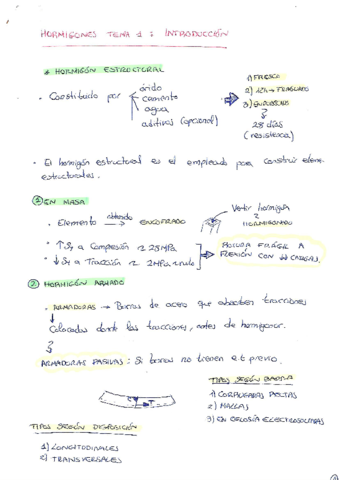 HORMIGONES TEMA 1: INTRODUCCIÓN
* HORMIGÓN ESTRUCTURAL
· Constituido por
árido
cemento
agua
aditivos (opcional)
1) FRESCO
2) 12h → FRAGUADO
3) ENDURECIDO
28 días
(resistencia)
· El hormigón estructural es el empleado para construir elem. estructurales.
① EN MASA
· Elemento → ENCOFRADO
Verter hormigón
HORMIGONADO
· ↑S, a Compresión ≈ 25MPa
· ↓S, a Tracción ≈ 2MPa
ROTURA FRÁGIL A
FLEXIÓN CON ↓↓ CARGAS.
② HORMIGÓN ARMADO
· ARMADURAS → Barras de acero que absorben tracciones
Colocadas donde las tracciones, antes de hormigonar.
ARMADURAS PASIVAS: Si barras no tienen e.t previo.
T
TIPOS SEGÚN BARRA
1) CORRUGADAS SUELTAS
2) MALLAS
3) EN CELOSÍA ELECTROSOLDADAS
TIPOS SEGÚN DISPOSICIÓN
1) LONGITUDINALES
2) TRANSVERSALES